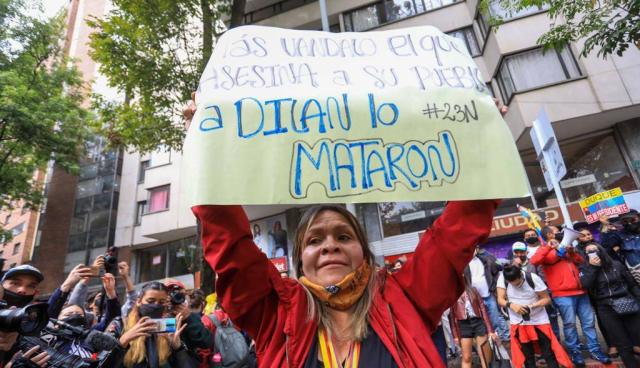 Más VANDALO el qUE
ASESINA A SU PUEBLO
a DILAN lo #23N
MATARON
DUQUE